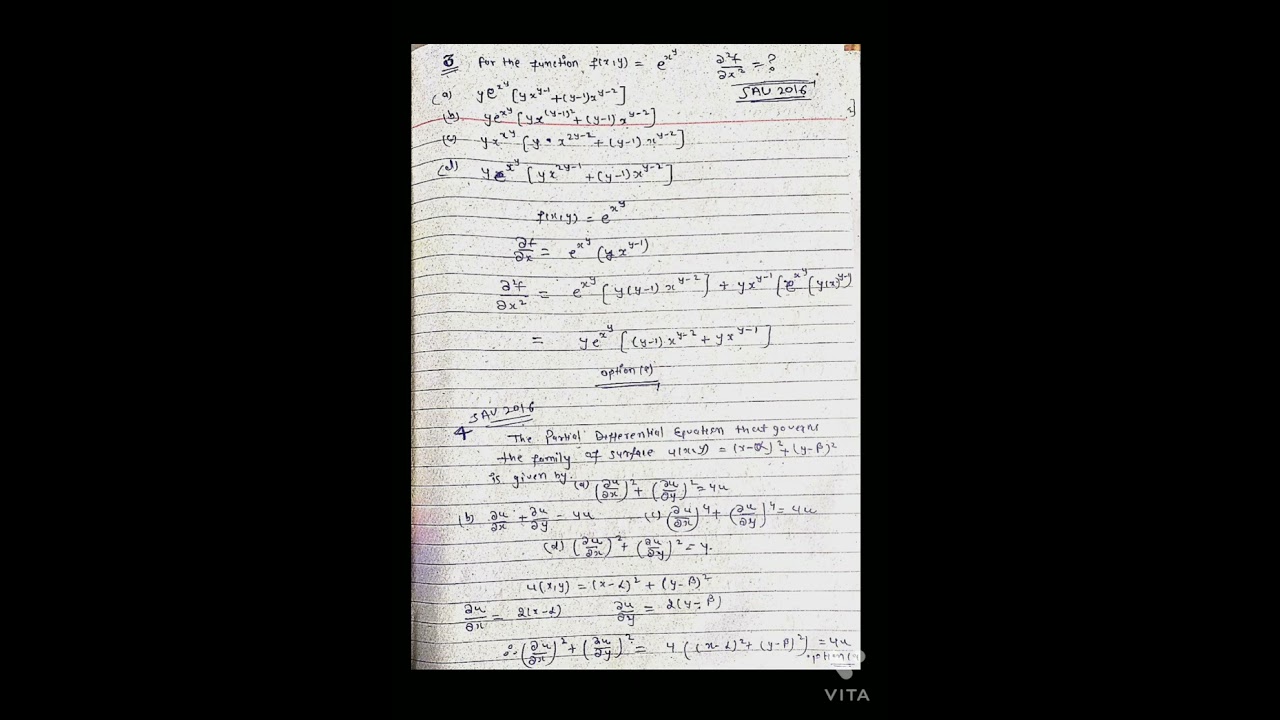 3 For the function f(x,y) = e^{x^y} ∂²f/∂x² = ?
SAU 2016
(a) ye^{x^y} [yx^{y-1} + (y-1)x^{y-2}]
(b) ye^{x^y} [yx^{(y-1)²} + (y-1)x^{y-2}]
(c) yx^{x^y} [y·x^{2y-2} + (y-1)x^{y-2}]
(d) ye^{x^y} [yx^{2y-1} + (y-1)x^{y-2}]
f(x,y) = e^{x^y}
∂f/∂x = e^{x^y} (yx^{y-1})
∂²f/∂x² = e^{x^y} [y(y-1)x^{y-2}] + yx^{y-1} [e^{x^y} (y(x)^{y-1})
= ye^{x^y} [(y-1)x^{y-2} + yx^{y-1}]
option
SAU 2016
4 The Partial Differential Equation that governs
the family of surface u(x,y) = (x-α)² + (y-β)²
is given by. (a) (∂u/∂x)² + (∂u/∂y)² = 4u
(b) ∂u/∂x + ∂u/∂y = 4u (c) (∂u/∂x)⁴ + (∂u/∂y)⁴ = 4u
(d) (∂u/∂x)² + (∂u/∂y)² = 4.
u(x,y) = (x-α)² + (y-β)²
∂u/∂x = 2(x-α) ∂u/∂y = 2(y-β)
∴ (∂u/∂x)² + (∂u/∂y)² = 4((x-α)² + (y-β)²) = 4u
VITA